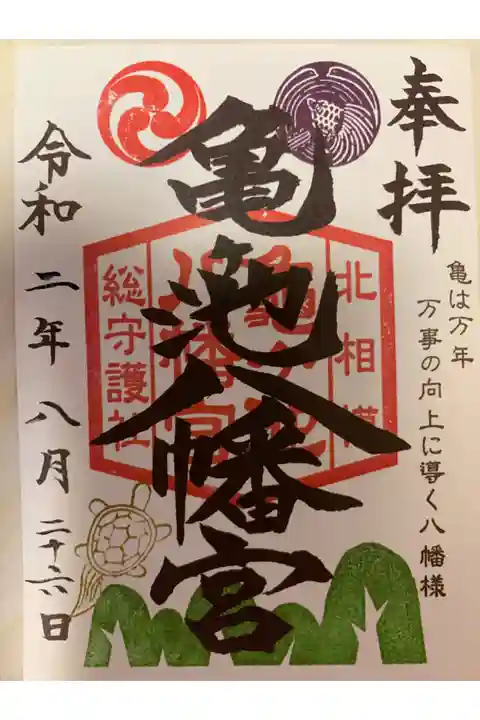 奉拝
亀は万年
万事の向上に導く八幡様
亀池八幡宮
北相模
総守護社
令和二年八月二十六日